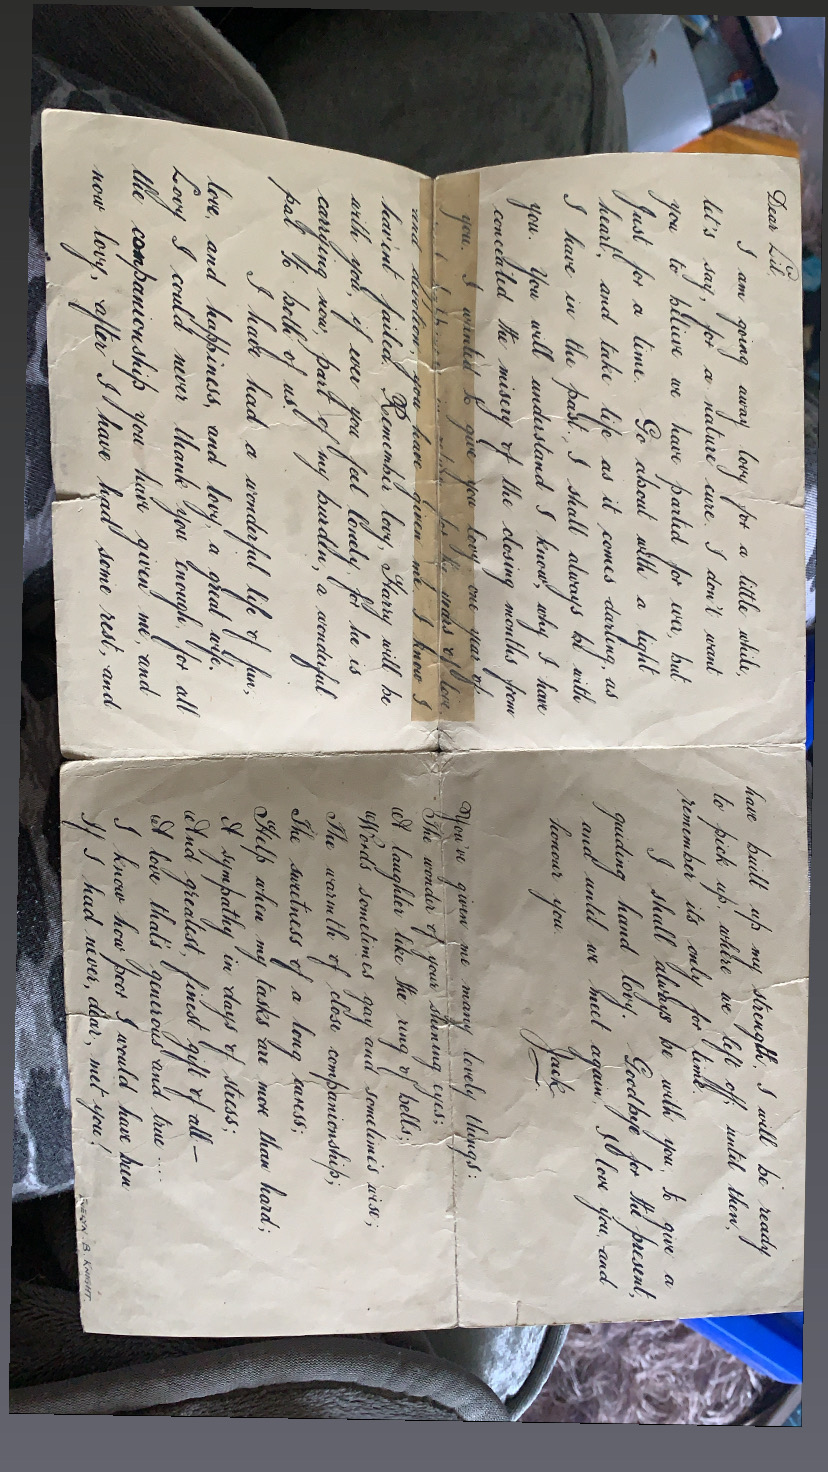 Dear Lil,
I am going away lovy for a little while,
let's say, for a nature cure, I don't want
you to believe we have parted for ever, but
just for a time. Go about with a light
heart, and take life as it comes darling, as
I have in the past, I shall always be with
you. You will understand I know, why I have
concealed the misery of the closing months from
you. I wanted to give you lovy, one year of
years of love,
and devotion, you have given me. I know I
havent failed. Remember lovy, Harry will be
with you, if ever you feel lonely, for he is
carrying now, part of my burden, a wonderful
pal to both of us.
I have had a wonderful life of fun,
love, and happiness, and lovy, a great wife.
Lovy I could never thank you enough, for all
the companionship you have given me, and
now lovy, after I have had some rest, and
have built up my strength, I will be ready
to pick up, where we left off, until then,
remember its only for time.
I shall always be with you, to give a
guiding hand lovy. Goodbye for the present,
and until we meet again. I love you, and
honour you.
Jack
You've given me many lovely things:
The wonder of your shining eyes;
A laughter like the ring of bells;
Words sometimes gay and sometimes wise;
The warmth of close companionship;
The sweetness of a long caress;
Help when my tasks are more than hard;
A sympathy in days of stress;
And greatest, finest gift of all—
A love that's generous and true....
I know how poor I would have been
If I had never, dear, met you!
B. KNIGHT.